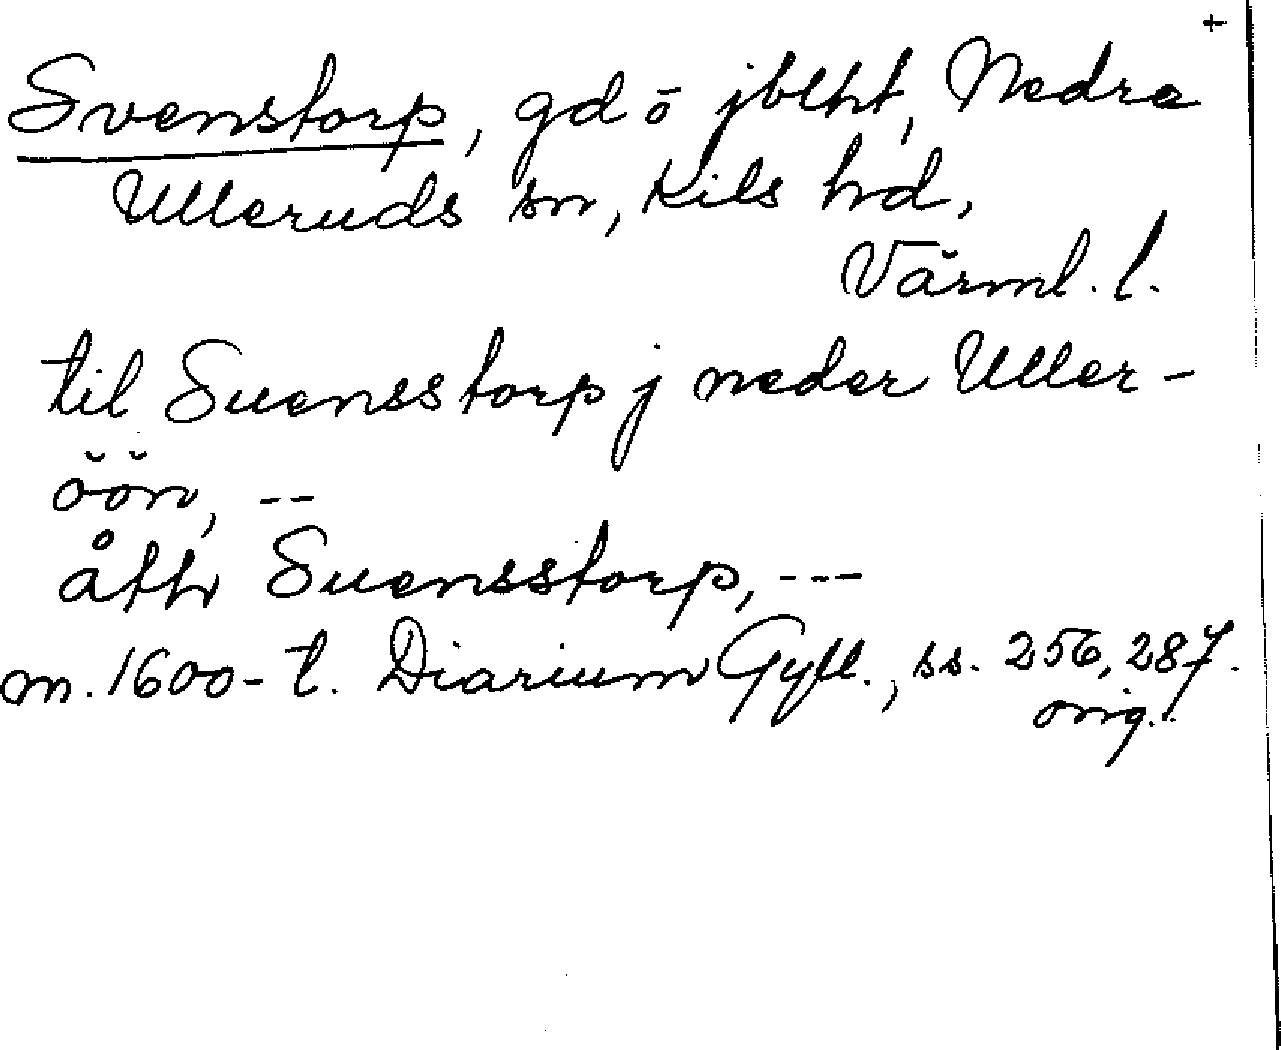 +
Svenstorp, gd ō jblht, Nedra
Ulleruds sn, Kils hd,
Värml. l.
til Suensstorp j neder Uller-
öön, --
åth Suensstorp, ---
m. 1600-t. Diarium Gyll., ss. 256, 287.
orig.